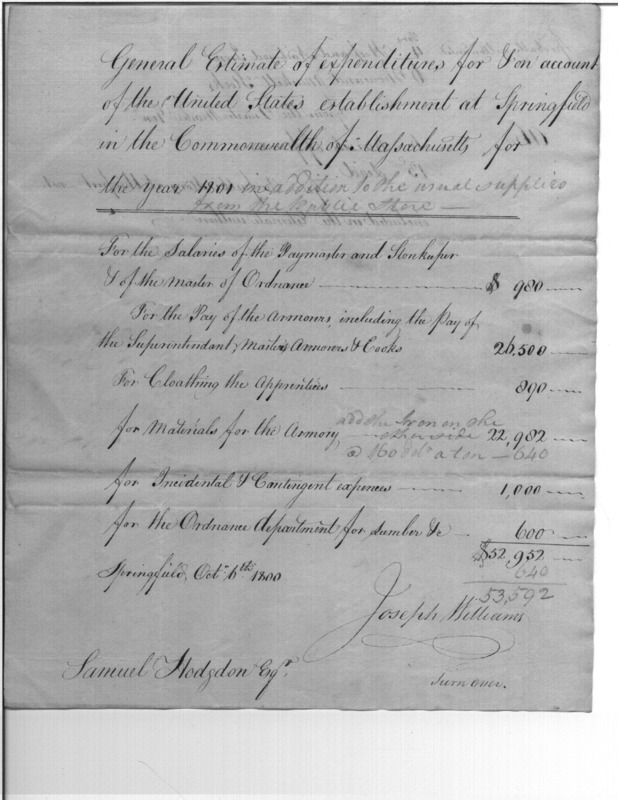 General Estimate of expenditures for & on account
of the United States establishment at Springfield
in the Commonwealth of Massachusetts for
the year 1801 in addition to the usual supplies
from the Public Store —
For the Salaries of the Paymaster and Storekeeper
& of the Master of Ordnance — $ 980 —
For the Pay of the Armourers, including the Pay of
the Superintendant, Master Armourer & Cooks 26,500 —
For Cloathing the Apprentices — 890 —
for Materials for the Armory, 22,982 —
add the Iron on the
other side
@ 160 Dolr a ton — 640
for Incidental & Contingent expences — 1,000 —
for the Ordnance department for Lumber &c — 600 —
$52,952 —
640
53,592
Springfield, Octr 6th 1800
Joseph Williams
Samuel Hodgdon Esqr.
Turn over.